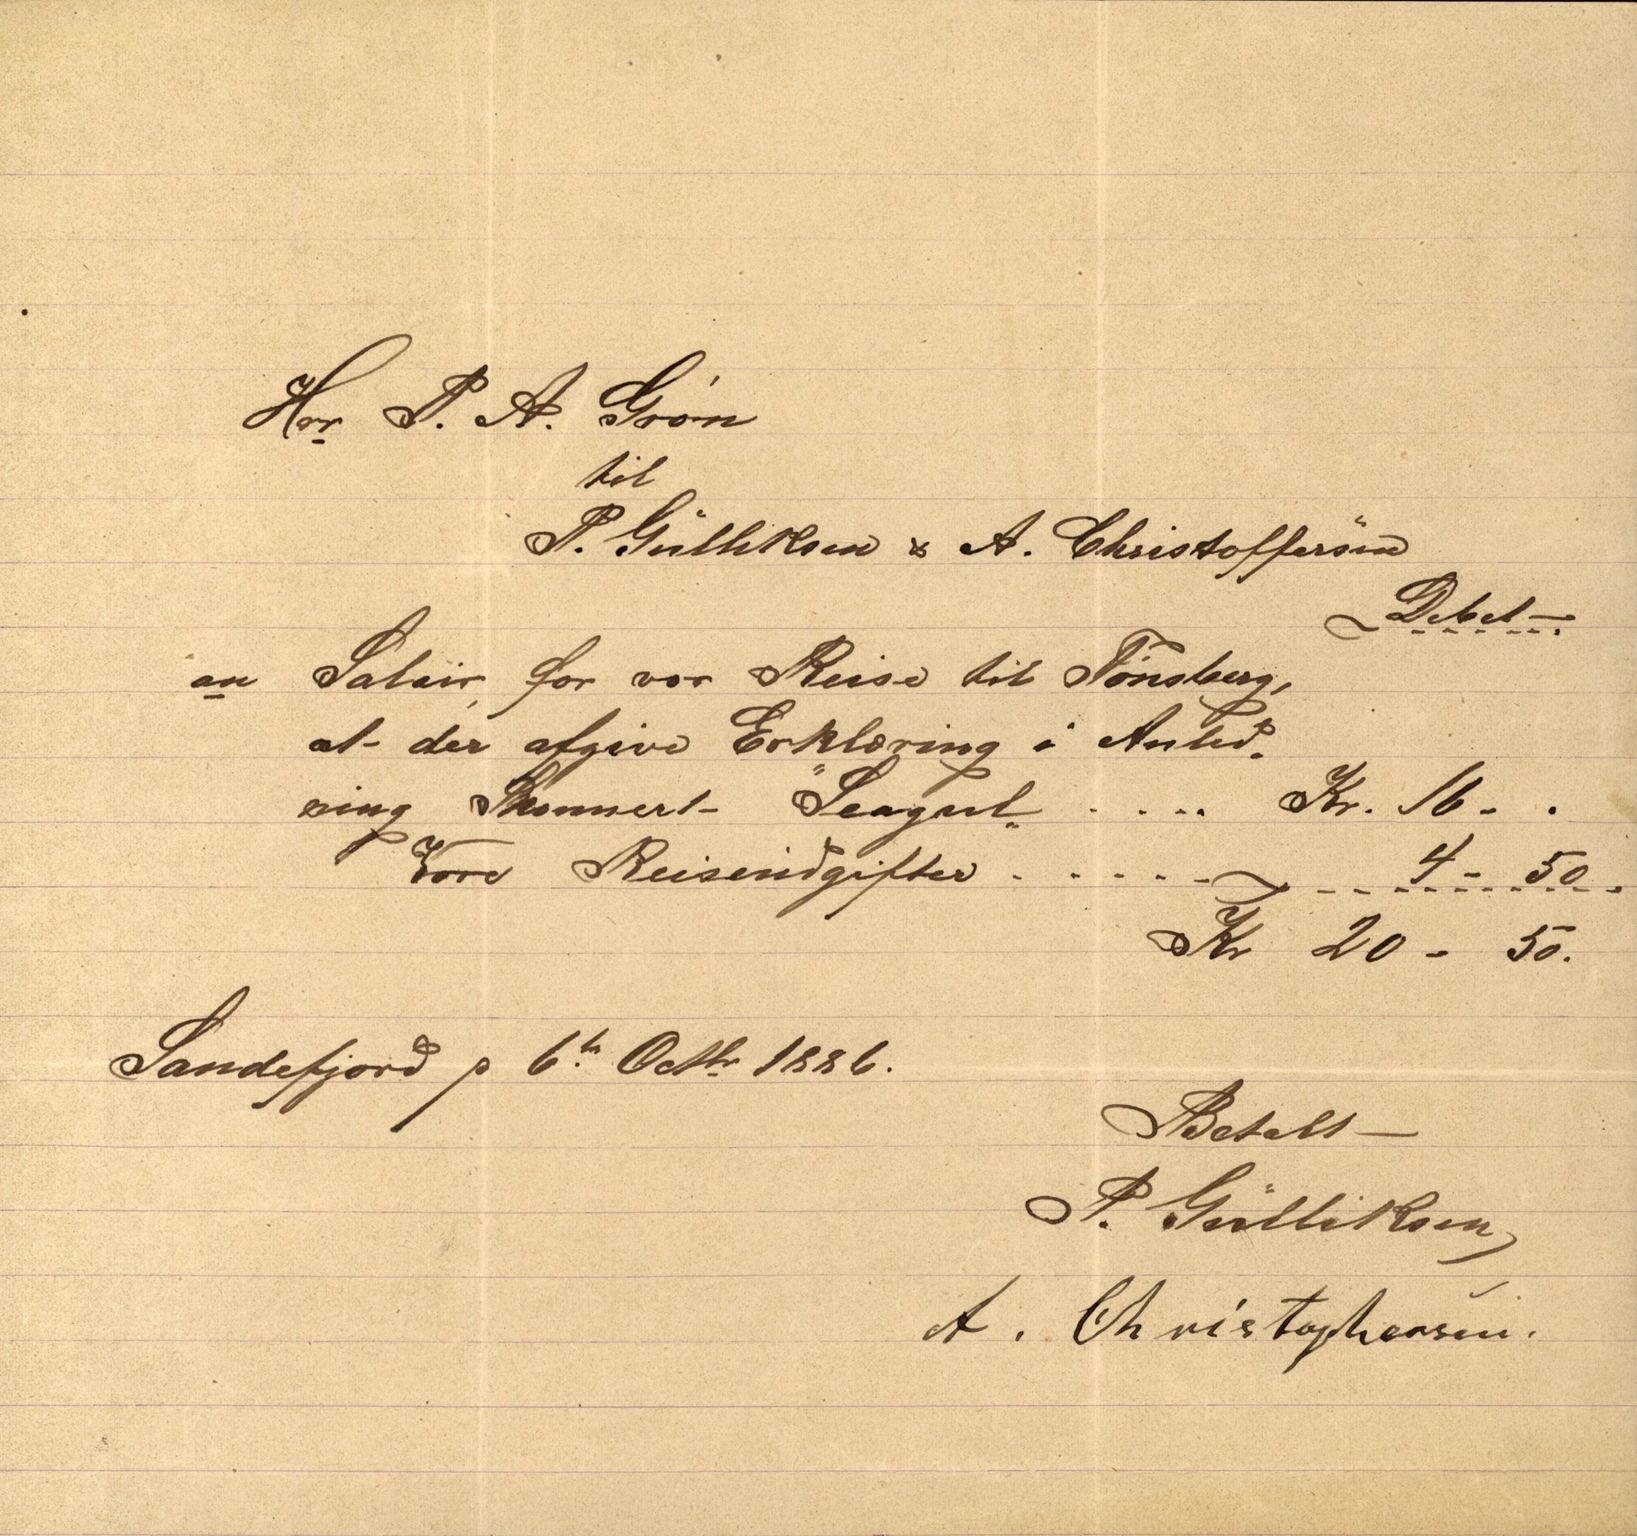 Hrr P. A. Grön
til
P. Gulliksen & A. Christoffersen
Debet
an Salair for vor Reise til Tönsberg,
at der afgive Erklæring i Anled.
ning Skonnert "Seagul" .... Kr. 16 - .
Vore Reiseudgifter . . . . . . . 4 - 50.
Kr 20 - 50.
Sandefjord p 6te Octbr 1886.
Betalt
P. Gulliksen
A. Christophersen.